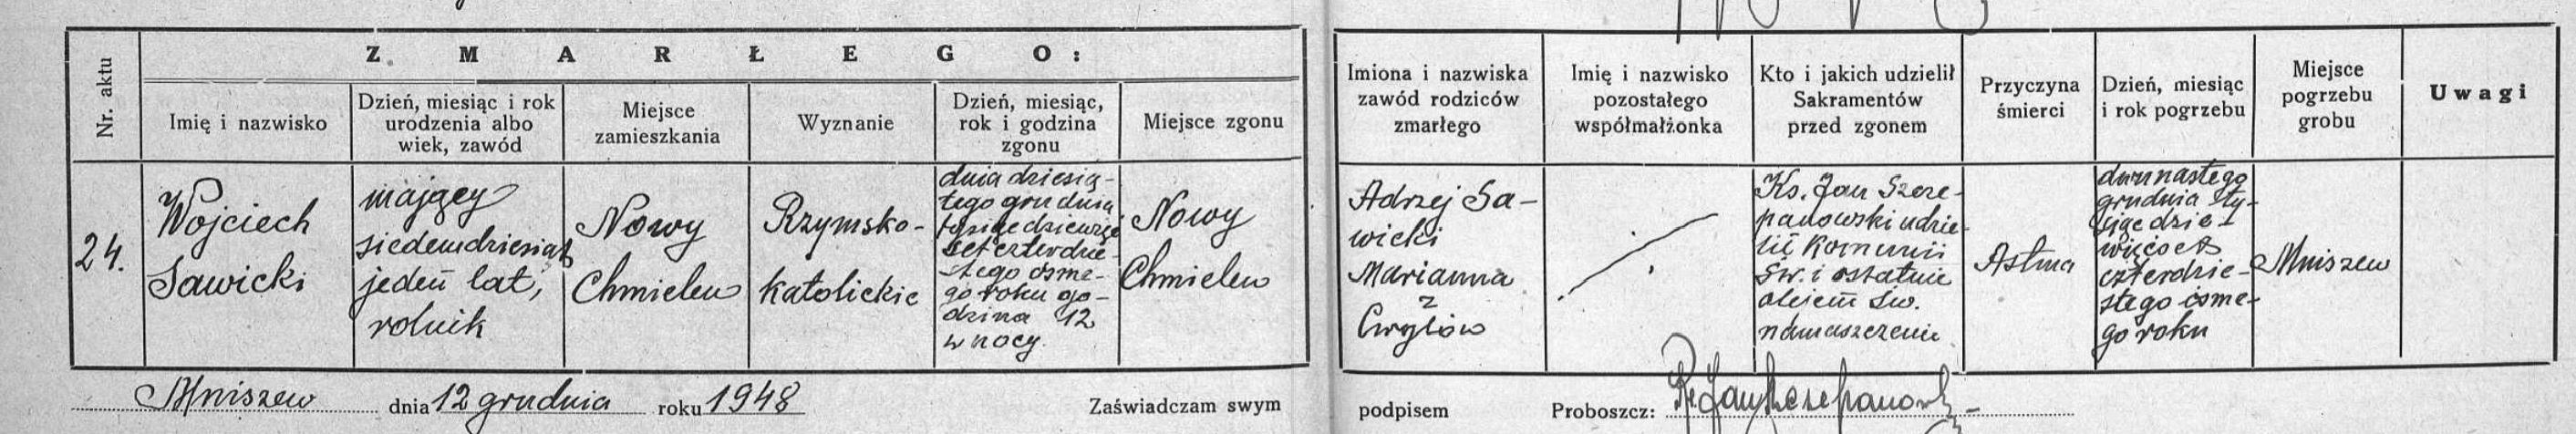 ZMARŁEGO:
Nr. aktu
Imię i nazwisko
Dzień, miesiąc i rok
urodzenia albo
wiek, zawód
Miejsce
zamieszkania
Wyznanie
Dzień, miesiąc,
rok i godzina
zgonu
Miejsce zgonu
Imiona i nazwiska
zawód rodziców
zmarłego
Imię i nazwisko
pozostałego
współmałżonka
Kto i jakich udzielił
Sakramentów
przed zgonem
Przyczyna
śmierci
Dzień, miesiąc
i rok pogrzebu
Miejsce
pogrzebu
grobu
Uwagi
24.
Wojciech
Sawicki
mający
siedemdziesiąt
jeden lat,
rolnik
Nowy
Chmielew
Rzymsko-
katolickie
dnia dziesią-
tego grudnia
tysiąc dziewięć
set czterdzie-
stego ósme-
go roku go-
dzina 12
w nocy.
Nowy
Chmielew
Adrzej Sa-
wicki
Marianna
z
Cwylów
Ks. Jan Szcze-
panowski udzie-
lił Komunii
Św. i ostatnie
olejem św.
namaszczenie
Astma
dwunastego
grudnia ty-
siąc dzie-
więćset
czterdzie-
stego ósme-
go roku
Mniszew
Mniszew dnia 12 grudnia roku 1948 Zaświadczam swym podpisem Proboszcz: Ks. Jan Szczepanowski